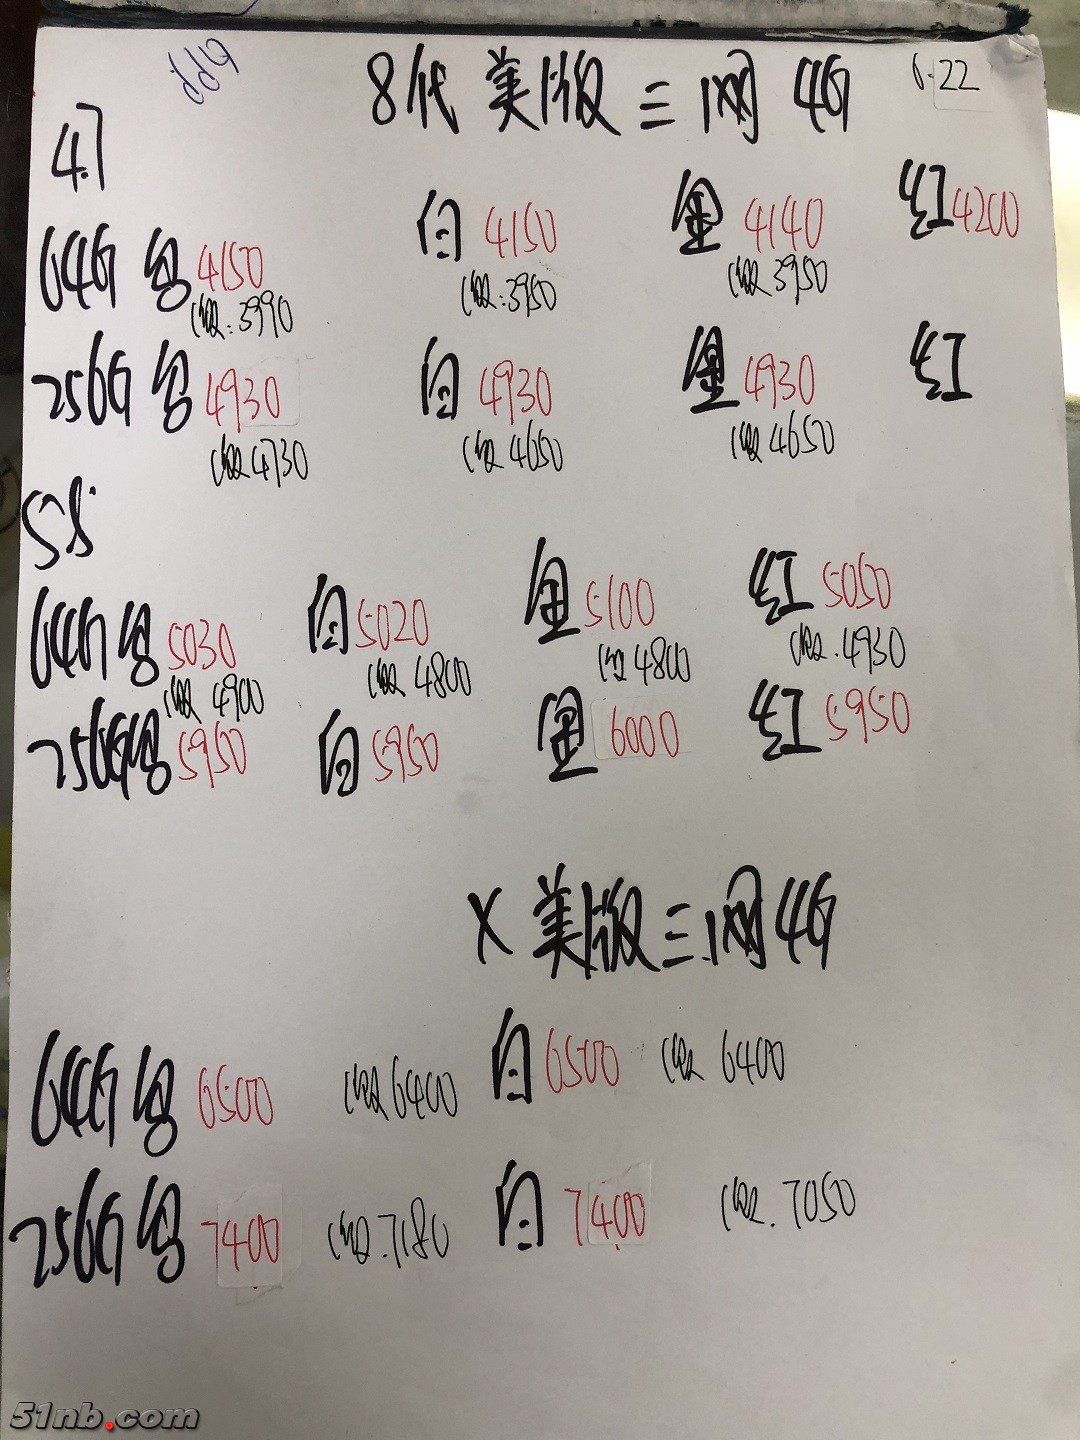 8代 美版 三网 4G 6.22
4.7
64G 黑 4150 白 4150 金 4140 红 4200
:3990 :3950 3950
256G 黑 4930 白 4930 金 4930 红
4730 4650 4650
5.5
64G 黑 5030 白 5020 金 5100 红 5050
4900 4800 4800 4930
256G 黑 5950 白 5950 金 6000 红 5950
X 美版 三网 4G
64G 黑 6500 6400 白 6500 6400
256G 黑 7400 7180 白 7400 7050
51nb.com